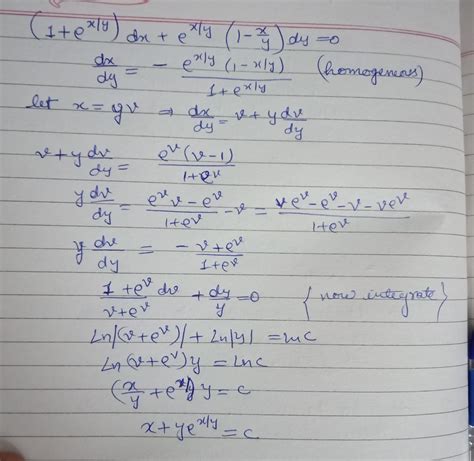 (1+e^{x/y}) dx + e^{x/y} (1-x/y) dy = 0
dx/dy = - e^{x/y} (1-x/y) / 1+e^{x/y} (homogeneous)
let x = yv ⇒ dx/dy = v + y dv/dy
v + y dv/dy = e^v (v-1) / 1+e^v
y dv/dy = e^v v - e^v / 1+e^v - v = ve^v - e^v - v - ve^v / 1+e^v
y dv/dy = - v+e^v / 1+e^v
1+e^v / v+e^v dv + dy/y = 0 { now integrate }
Ln|(v+e^v)| + Ln|y| = lnc
Ln(v+e^v)y = lnc
(x/y + e^{x/y}) y = c
x + ye^{x/y} = c